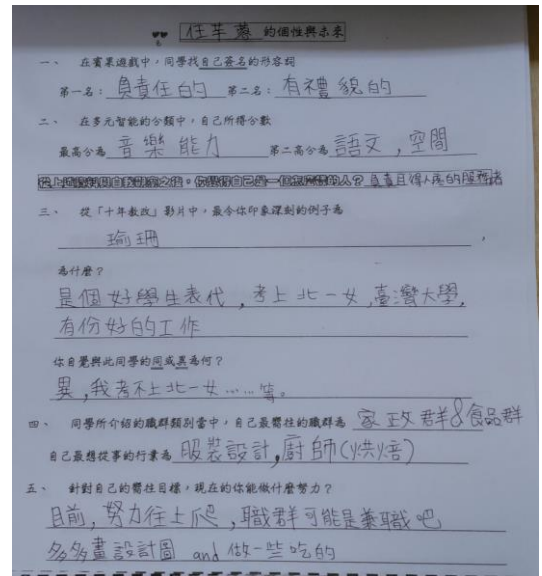 任芊蓴 的個性與未來
一、 在賓果遊戲中，同學找自己簽名的形容詞
第一名：負責任的 第二名：有禮貌的
二、 在多元智能的分類中，自己所得分數
最高分為 音樂能力 第二高分為 語文，空間
你覺得自己是一個 的人？負責且得人疼的服務者
三、 從「十年教改」影片中，最令你印象深刻的例子為
瑜珊，
為什麼？
是個好學生表代，考上北一女，臺灣大學，
有份好的工作
你自覺與此同學的同或異為何？
異，我考不上北一女……等。
四、 同學所介紹的職群類別當中，自己最嚮往的職群為 家政群&食品群
自己最想從事的行業為 服裝設計，廚師(烘焙)
五、 針對自己的嚮往目標，現在的你能做什麼努力？
目前，努力往上爬，職群可能是兼職吧
多多畫設計圖 and 做一些吃的